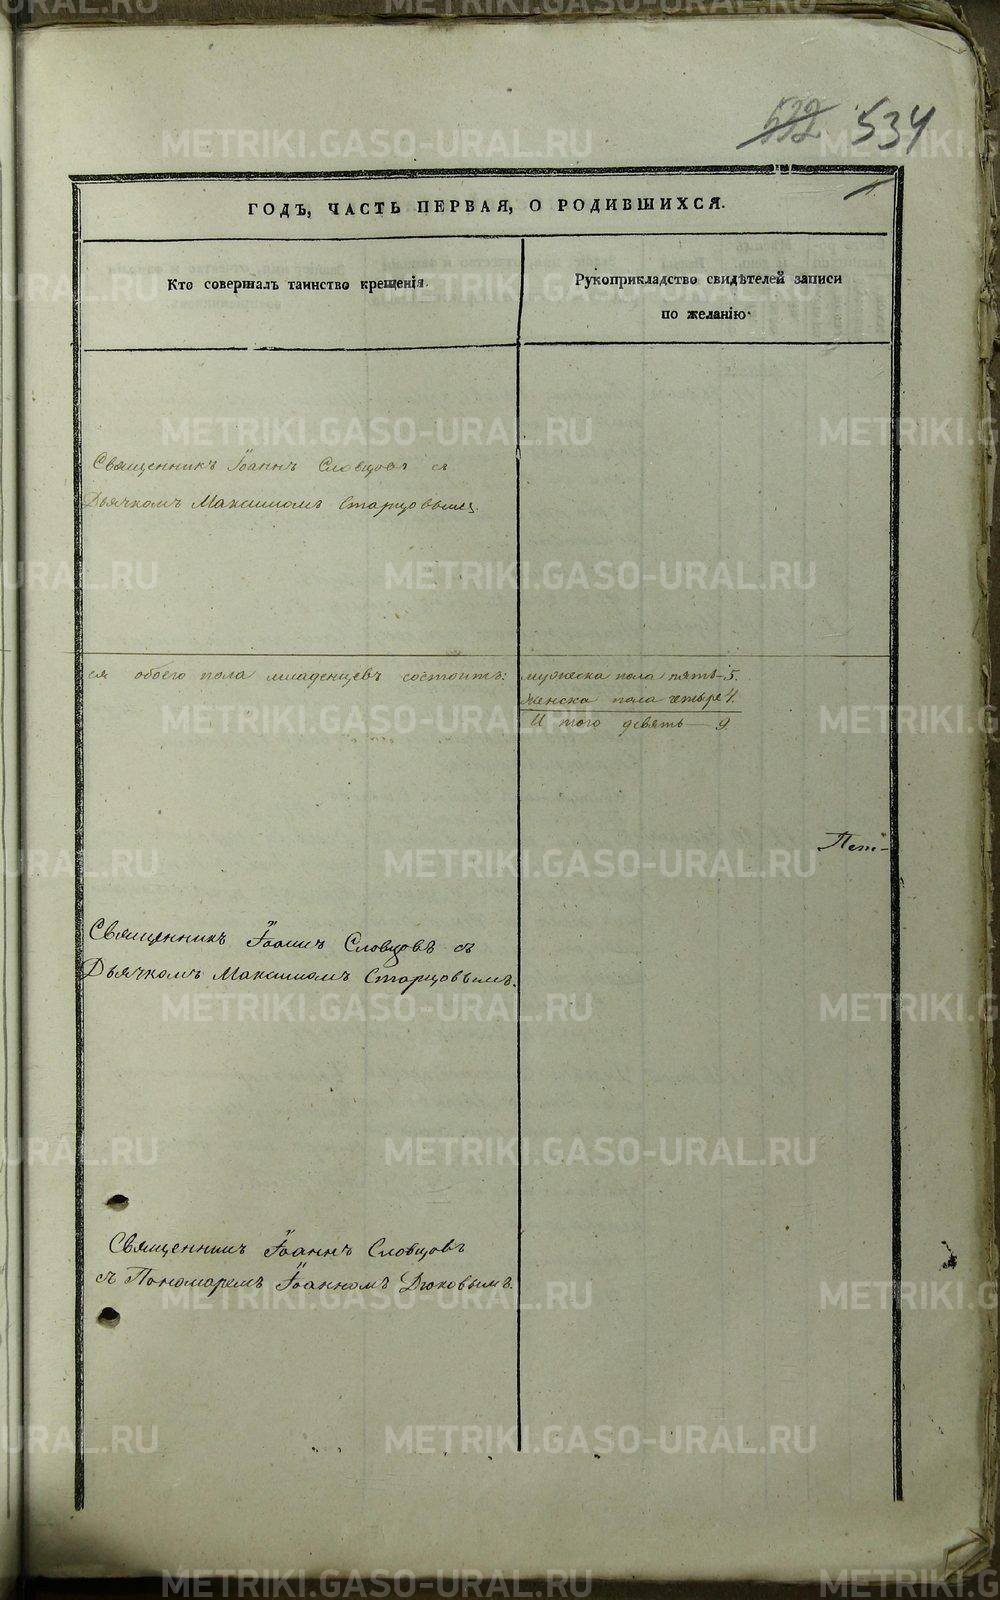 532 534
ГОДЪ, ЧАСТЬ ПЕРВАЯ, О РОДИВШИХСЯ.
Кто совершалъ таинство крещенія.
Рукоприкладство свидѣтелей записи
по желанію.
Священникъ Іоаннъ Словцовъ съ
Дьячкомъ Максимомъ Старцовымъ.
ся обоего пола младенцевъ состоитъ: мужеска пола пять-5.
женска пола четыре 4.
И того девять — 9.
Пет-
Священникъ Іоаннъ Словцовъ съ
Дьячкомъ Максимомъ Старцовымъ.
Священникъ Іоаннъ Словцовъ
съ Пономаремъ Іоанномъ Дюковымъ.
METRIKI.GASO-URAL.RU